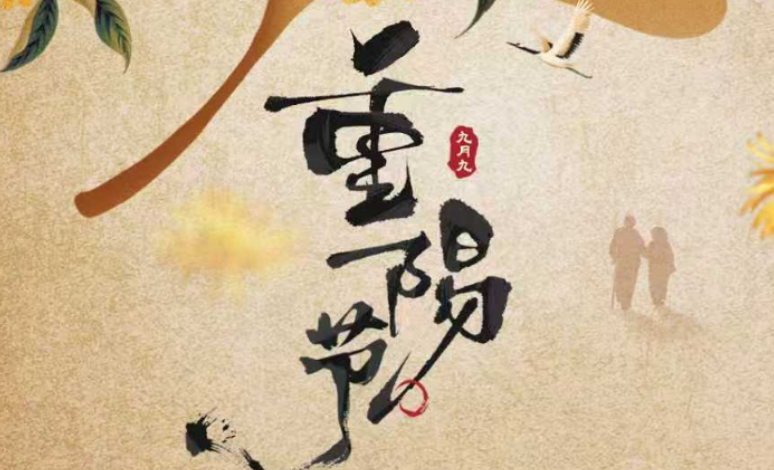 重阳节
九月九